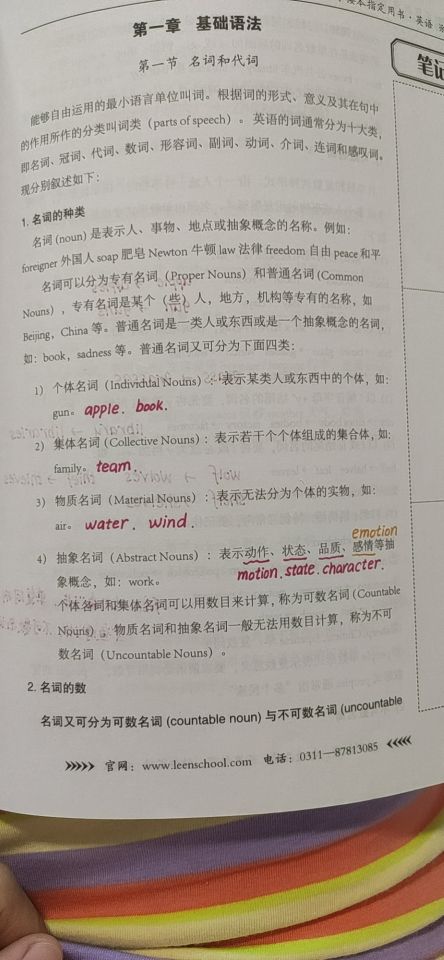 接本指定用书·英语
第一章 基础语法
笔记
第一节 名词和代词
能够自由运用的最小语言单位叫词。根据词的形式、意义及其在句中
的作用所作的分类叫词类（parts of speech）。英语的词通常分为十大类，
即名词、冠词、代词、数词、形容词、副词、动词、介词、连词和感叹词。
现分别叙述如下：
1. 名词的种类
名词 (noun) 是表示人、事物、地点或抽象概念的名称。例如：
foreigner 外国人 soap 肥皂 Newton 牛顿 law 法律 freedom 自由 peace 和平
名词可以分为专有名词（Proper Nouns）和普通名词 (Common
Nouns)，专有名词是某个（些）人，地方，机构等专有的名称，如
Beijing，China 等。普通名词是一类人或东西或是一个抽象概念的名词，
如：book，sadness 等。普通名词又可分为下面四类：
1） 个体名词（Individual Nouns）：表示某类人或东西中的个体，如：
gun。 apple. book.
2） 集体名词（Collective Nouns）：表示若干个个体组成的集合体，如：
family。 team.
3） 物质名词（Material Nouns）：表示无法分为个体的实物，如：
air。 water. wind.
emotion
4） 抽象名词（Abstract Nouns）：表示动作、状态、品质、感情等抽
象概念，如：work。 motion. state. character.
个体名词和集体名词可以用数目来计算，称为可数名词 (Countable
Nouns)。物质名词和抽象名词一般无法用数目计算，称为不可
数名词（Uncountable Nouns）。
2. 名词的数
名词又可分为可数名词 (countable noun) 与不可数名词 (uncountable
官网：www.leenschool.com 电话：0311—87813085